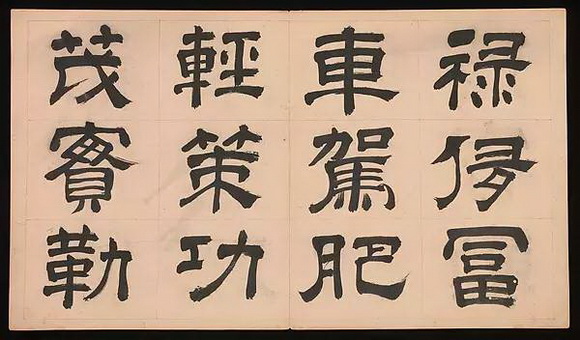 禄侈冨
車駕肥
輕策功
茂實勒